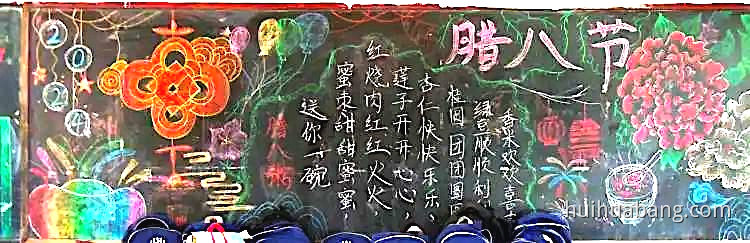 2024
腊八节
香米欢欢喜
绿豆顺顺利
桂圆团团圆
杏仁快快乐乐、
莲子开开心心,
红烧肉红红火火,
蜜枣甜甜蜜蜜,
送你一碗
腊八粥
huihuabang.com